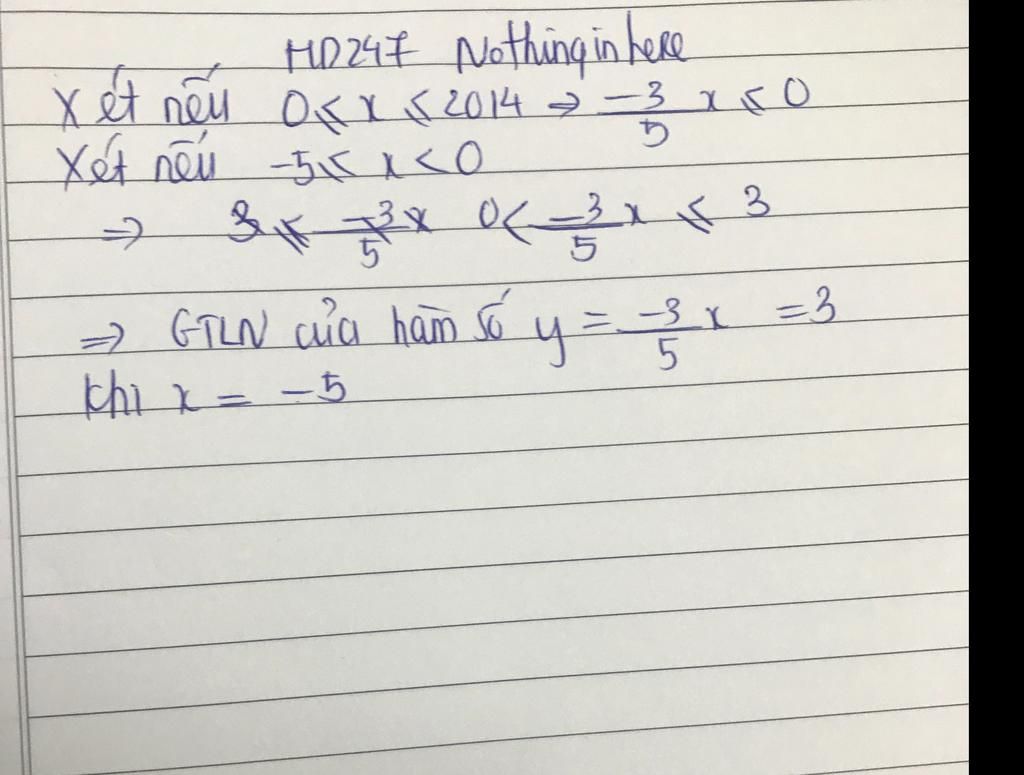 HD247 Nothing in here
Xét nếu 0 ⩽ x ⩽ 2014 ⇒ -3/5 x ⩽ 0
Xét nếu -5 ⩽ x < 0
⇒ 3 ⩽ -3/5 x 0 < -3/5 x ⩽ 3
⇒ GTLN của hàm số y = -3/5 x = 3
khi x = -5